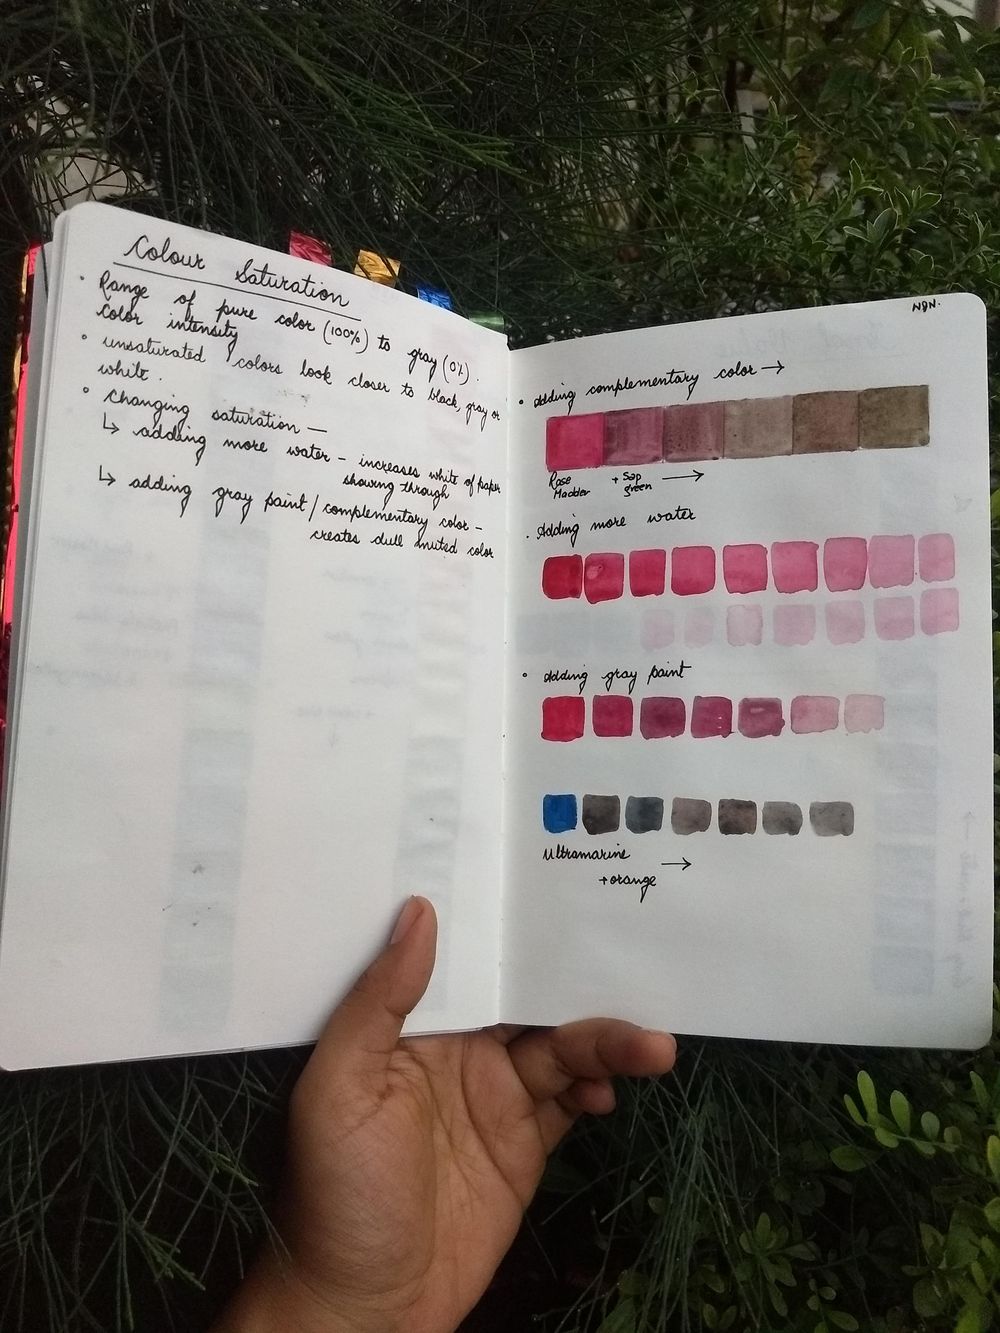 Colour Saturation
• Range of pure color (100%) to gray (0%).
color intensity
• unsaturated colors look closer to black, gray or
white.
• changing saturation —
↳ adding more water – increases white of paper
showing through
↳ adding gray paint / complementary color –
creates dull muted color
NGN.
• Adding complementary color →
Rose
Madder
+ Sap
green →
• Adding more water
• Adding gray paint
Ultramarine
+ orange →